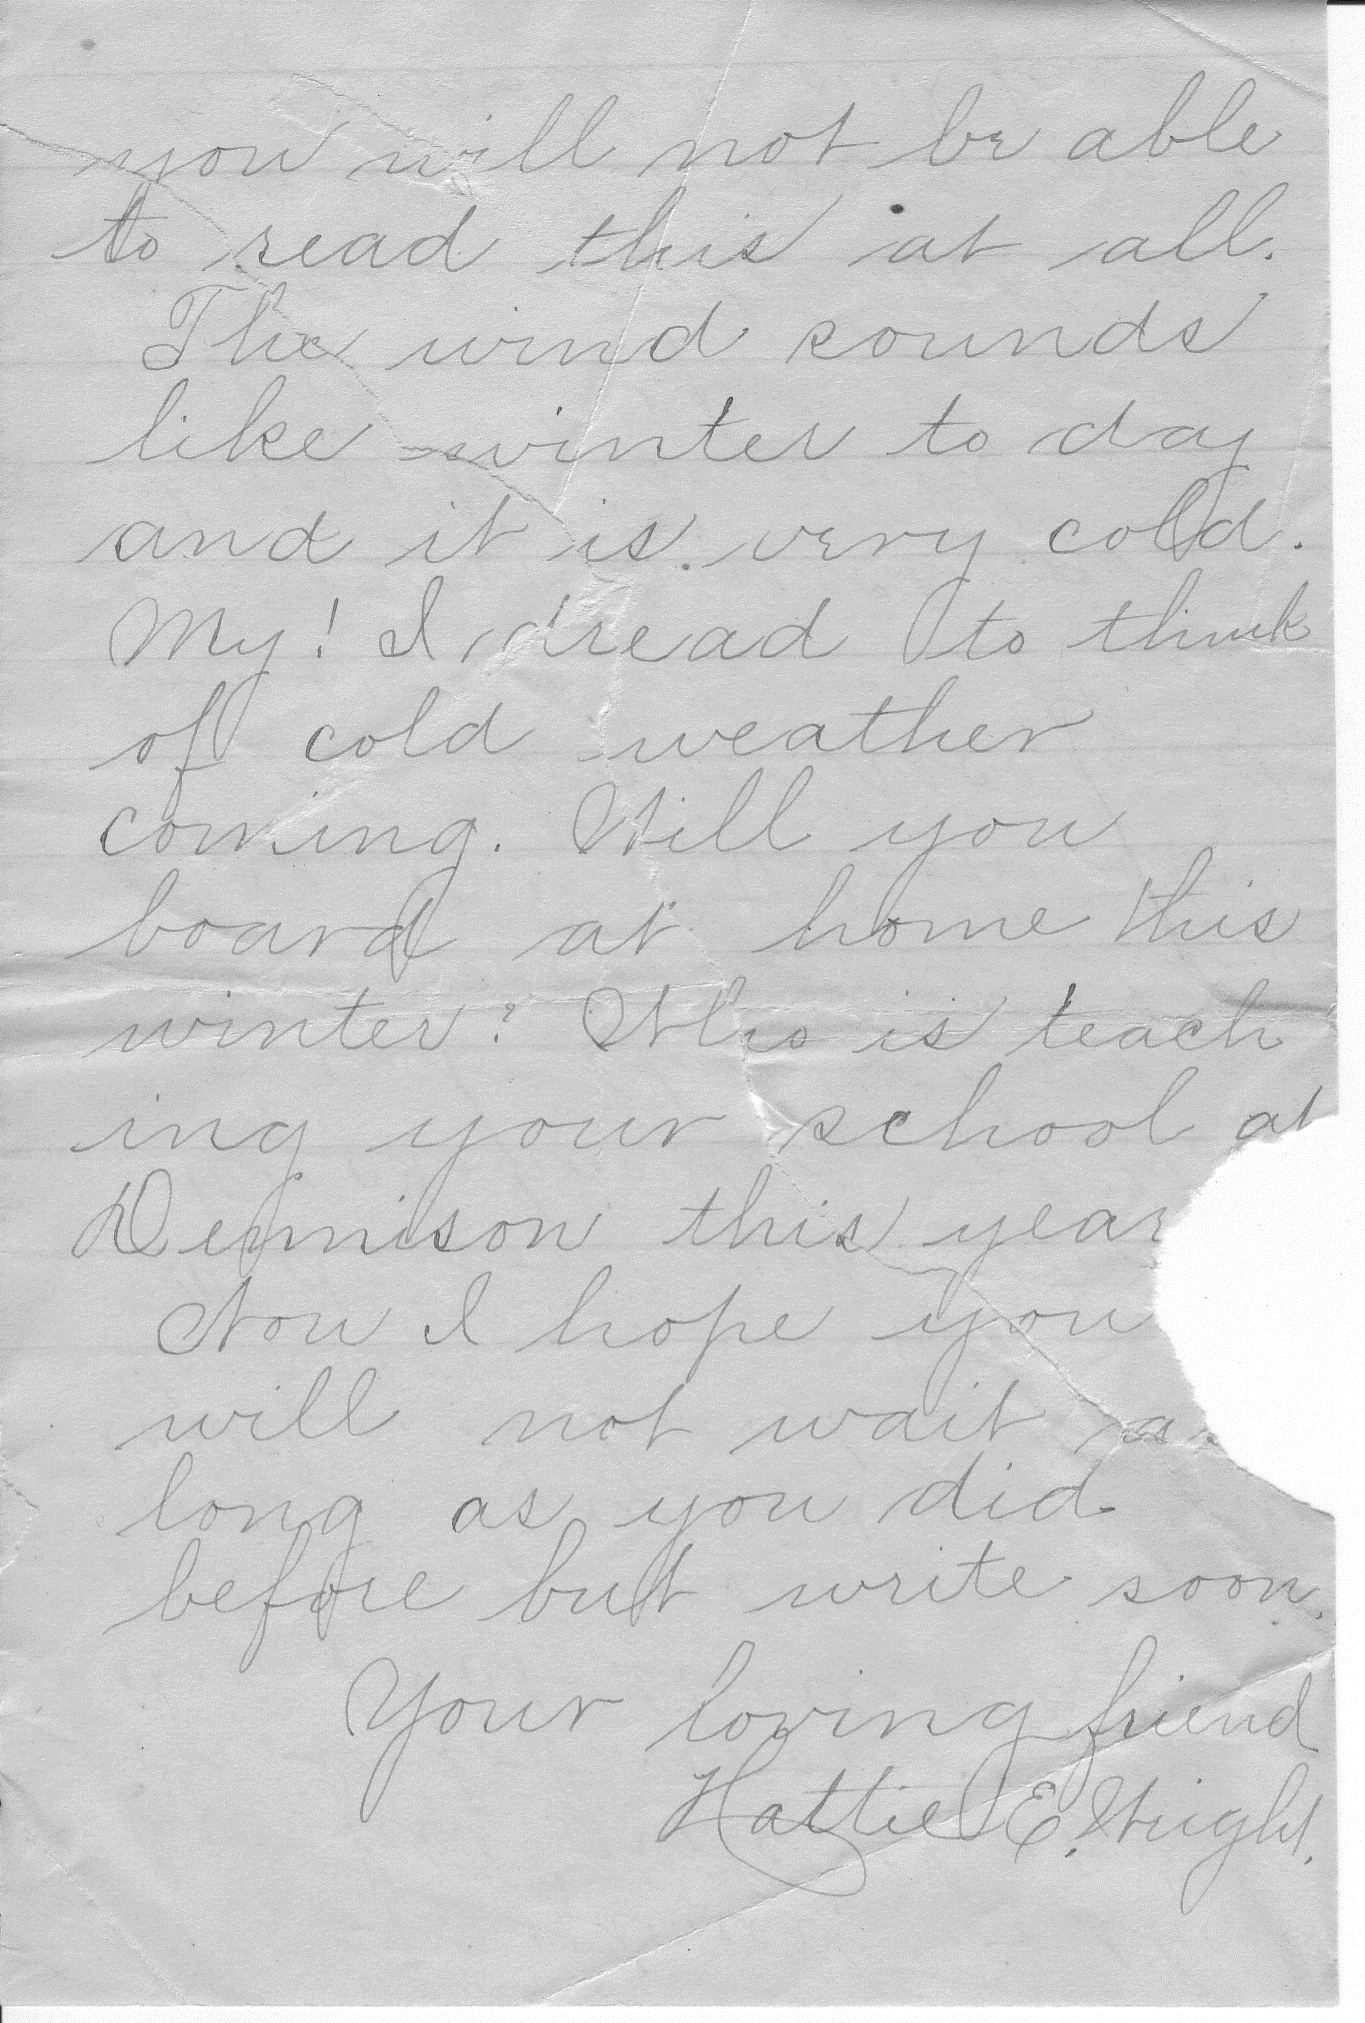 you will not be able
to read this at all.
The wind sounds
like winter to day
and it is very cold.
My! I dread to think
of cold weather
coming. Will you
board at home this
winter? Who is teach
ing your school at
Dennison this year
Now I hope you
will not wait as
long as you did
before but write soon.
Your loving friend
Hattie E. Wright.